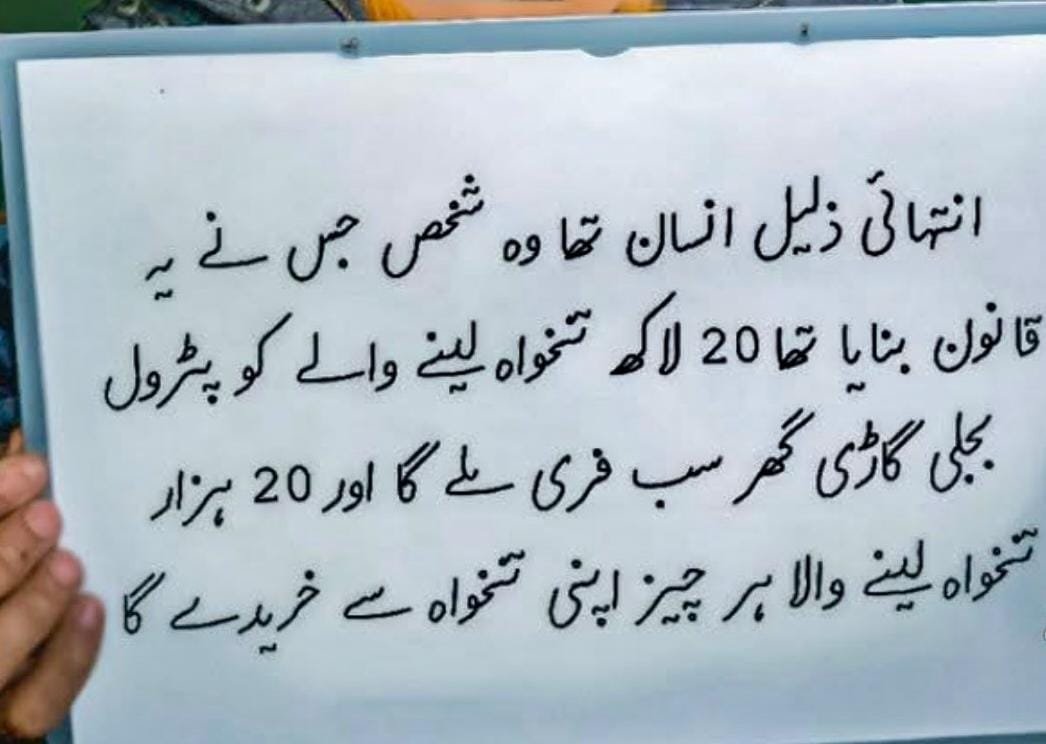 انتہائی ذلیل انسان تھا وہ شخص جس نے یہ
قانون بنایا تھا 20 لاکھ تنخواہ لینے والے کو پٹرول
بجلی گاڑی گھر سب فری ملے گا اور 20 ہزار
تنخواہ لینے والا ہر چیز اپنی تنخواہ سے خریدے گا